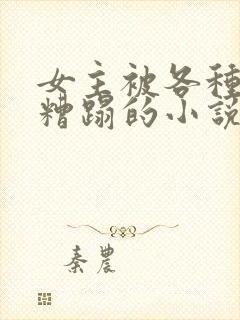 女主被各種
糟蹋的小說
秦農